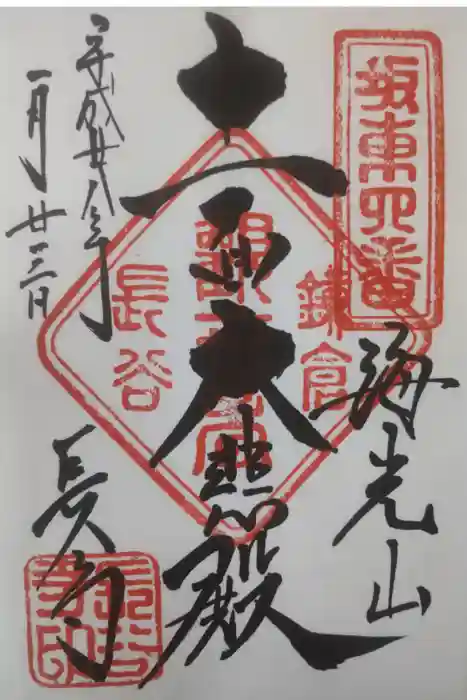 坂東四番
海光山
十一面大悲殿
鎌倉
長谷
平成廿八年
一月廿三日
長谷寺
長谷寺印